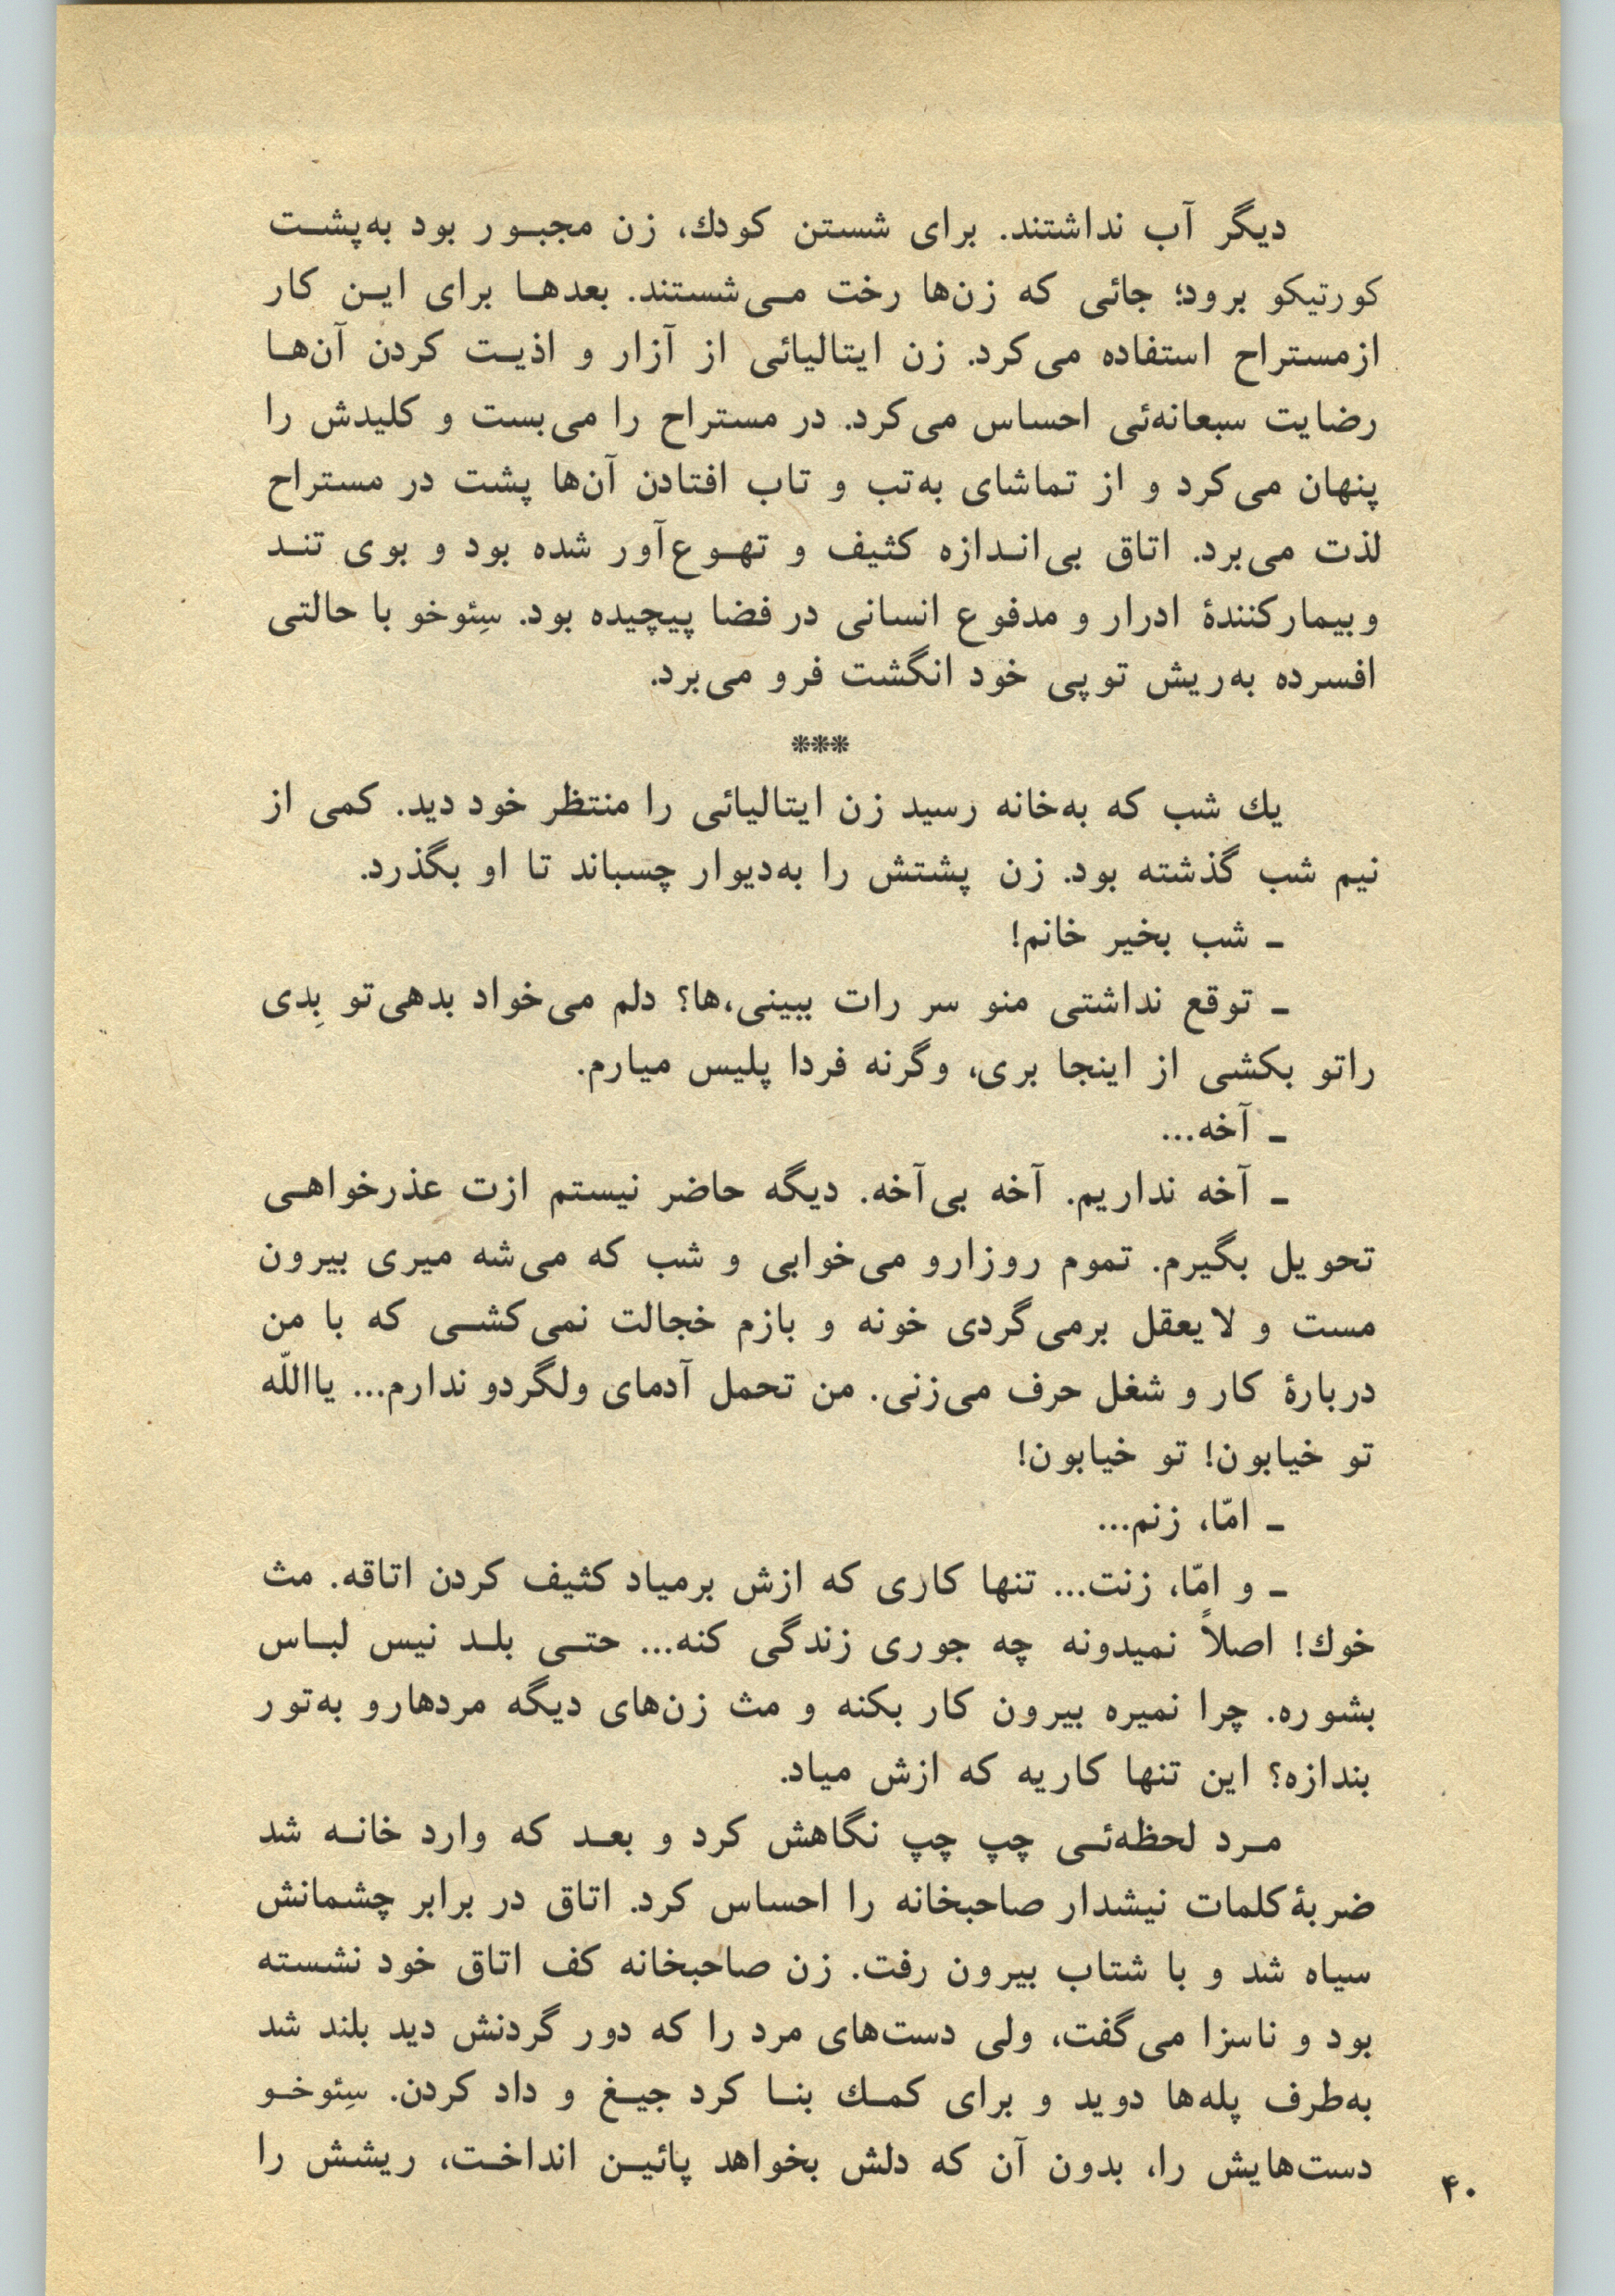 دیگر آب نداشتند. برای شستن کودك، زن مجبـور بود به‌پشـت
کورتیکو برود؛ جائی که زن‌ها رخت مـی‌شستند. بعدهـا برای ایـن کار
ازمستراح استفاده می‌کرد. زن ایتالیائی از آزار و اذیـت کردن آن‌هـا
رضایت سبعانه‌ئی احساس می‌کرد. در مستراح را می‌بست و کلیدش را
پنهان می‌کرد و از تماشای به‌تب و تاب افتادن آن‌ها پشت در مستراح
لذت می‌برد. اتاق بی‌انـدازه کثیف و تهـوع‌آور شده بود و بوی تنـد
وبیمارکنندهٔ ادرار و مدفوع انسانی در فضا پیچیده بود. سِئوخو با حالتی
افسرده به‌ریش توپی خود انگشت فرو می‌برد.
***
یك شب که به‌خانه رسید زن ایتالیائی را منتظر خود دید. کمی از
نیم شب گذشته بود. زن پشتش را به‌دیوار چسباند تا او بگذرد.
ـ شب بخیر خانم!
ـ توقع نداشتی منو سر رات ببینی،ها؟ دلم می‌خواد بدهی‌تو بِدی
راتو بکشی از اینجا بری، وگرنه فردا پلیس میارم.
ـ آخه...
ـ آخه نداریم. آخه بی‌آخه. دیگه حاضر نیستم ازت عذرخواهـی
تحویل بگیرم. تموم روزارو می‌خوابی و شب که می‌شه میری بیرون
مست و لایعقل برمی‌گردی خونه و بازم خجالت نمی‌کشـی که با من
دربارهٔ کار و شغل حرف می‌زنی. من تحمل آدمای ولگردو ندارم... یااللّه
تو خیابون! تو خیابون!
ـ امّا، زنم...
ـ و امّا، زنت... تنها کاری که ازش برمیاد کثیف کردن اتاقه. مث
خوك! اصلاً نمیدونه چه جوری زندگی کنه... حتـی بلـد نیس لبـاس
بشوره. چرا نمیره بیرون کار بکنه و مث زن‌های دیگه مردهارو به‌تور
بندازه؟ این تنها کاریه که ازش میاد.
مـرد لحظه‌ئـی چپ چپ نگاهش کرد و بعـد که وارد خانـه شد
ضربهٔ‌کلمات نیشدار صاحبخانه را احساس کرد. اتاق در برابر چشمانش
سیاه شد و با شتاب بیرون رفت. زن صاحبخانه کف اتاق خود نشسته
بود و ناسزا می‌گفت، ولی دست‌های مرد را که دور گردنش دید بلند شد
به‌طرف پله‌ها دوید و برای کمـك بنـا کرد جیـغ و داد کردن. سِئوخـو
دست‌هایش را، بدون آن که دلش بخواهد پائیـن انداخـت، ریشش را
۴۰